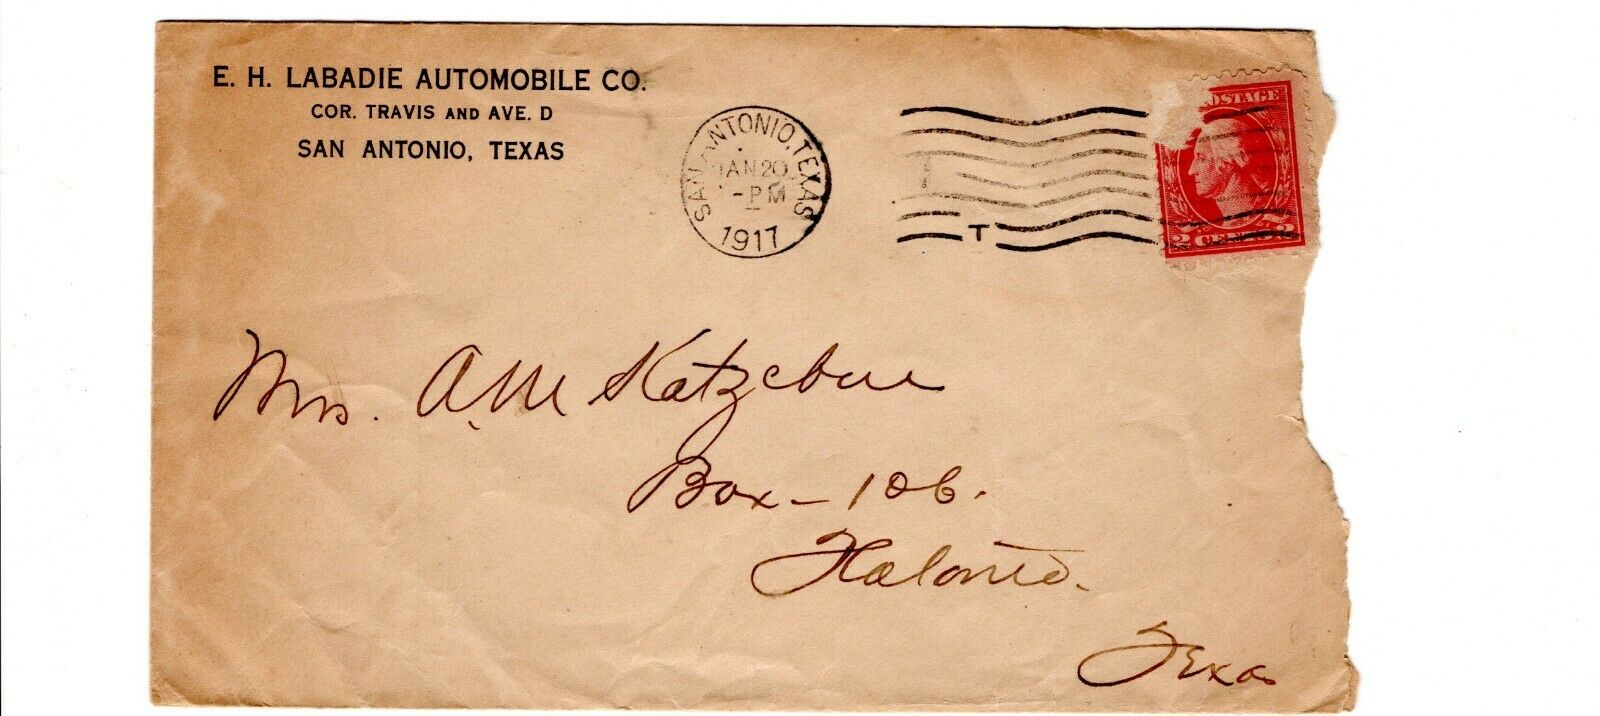 E. H. LABADIE AUTOMOBILE CO.
COR. TRAVIS AND AVE. D
SAN ANTONIO, TEXAS
SAN ANTONIO, TEXAS
JAN 20
-PM
1917
T
OSTAGE
2 CENTS 2
Mrs. A.M Kotzebue
Box - 106.
Flatonia.
Texas